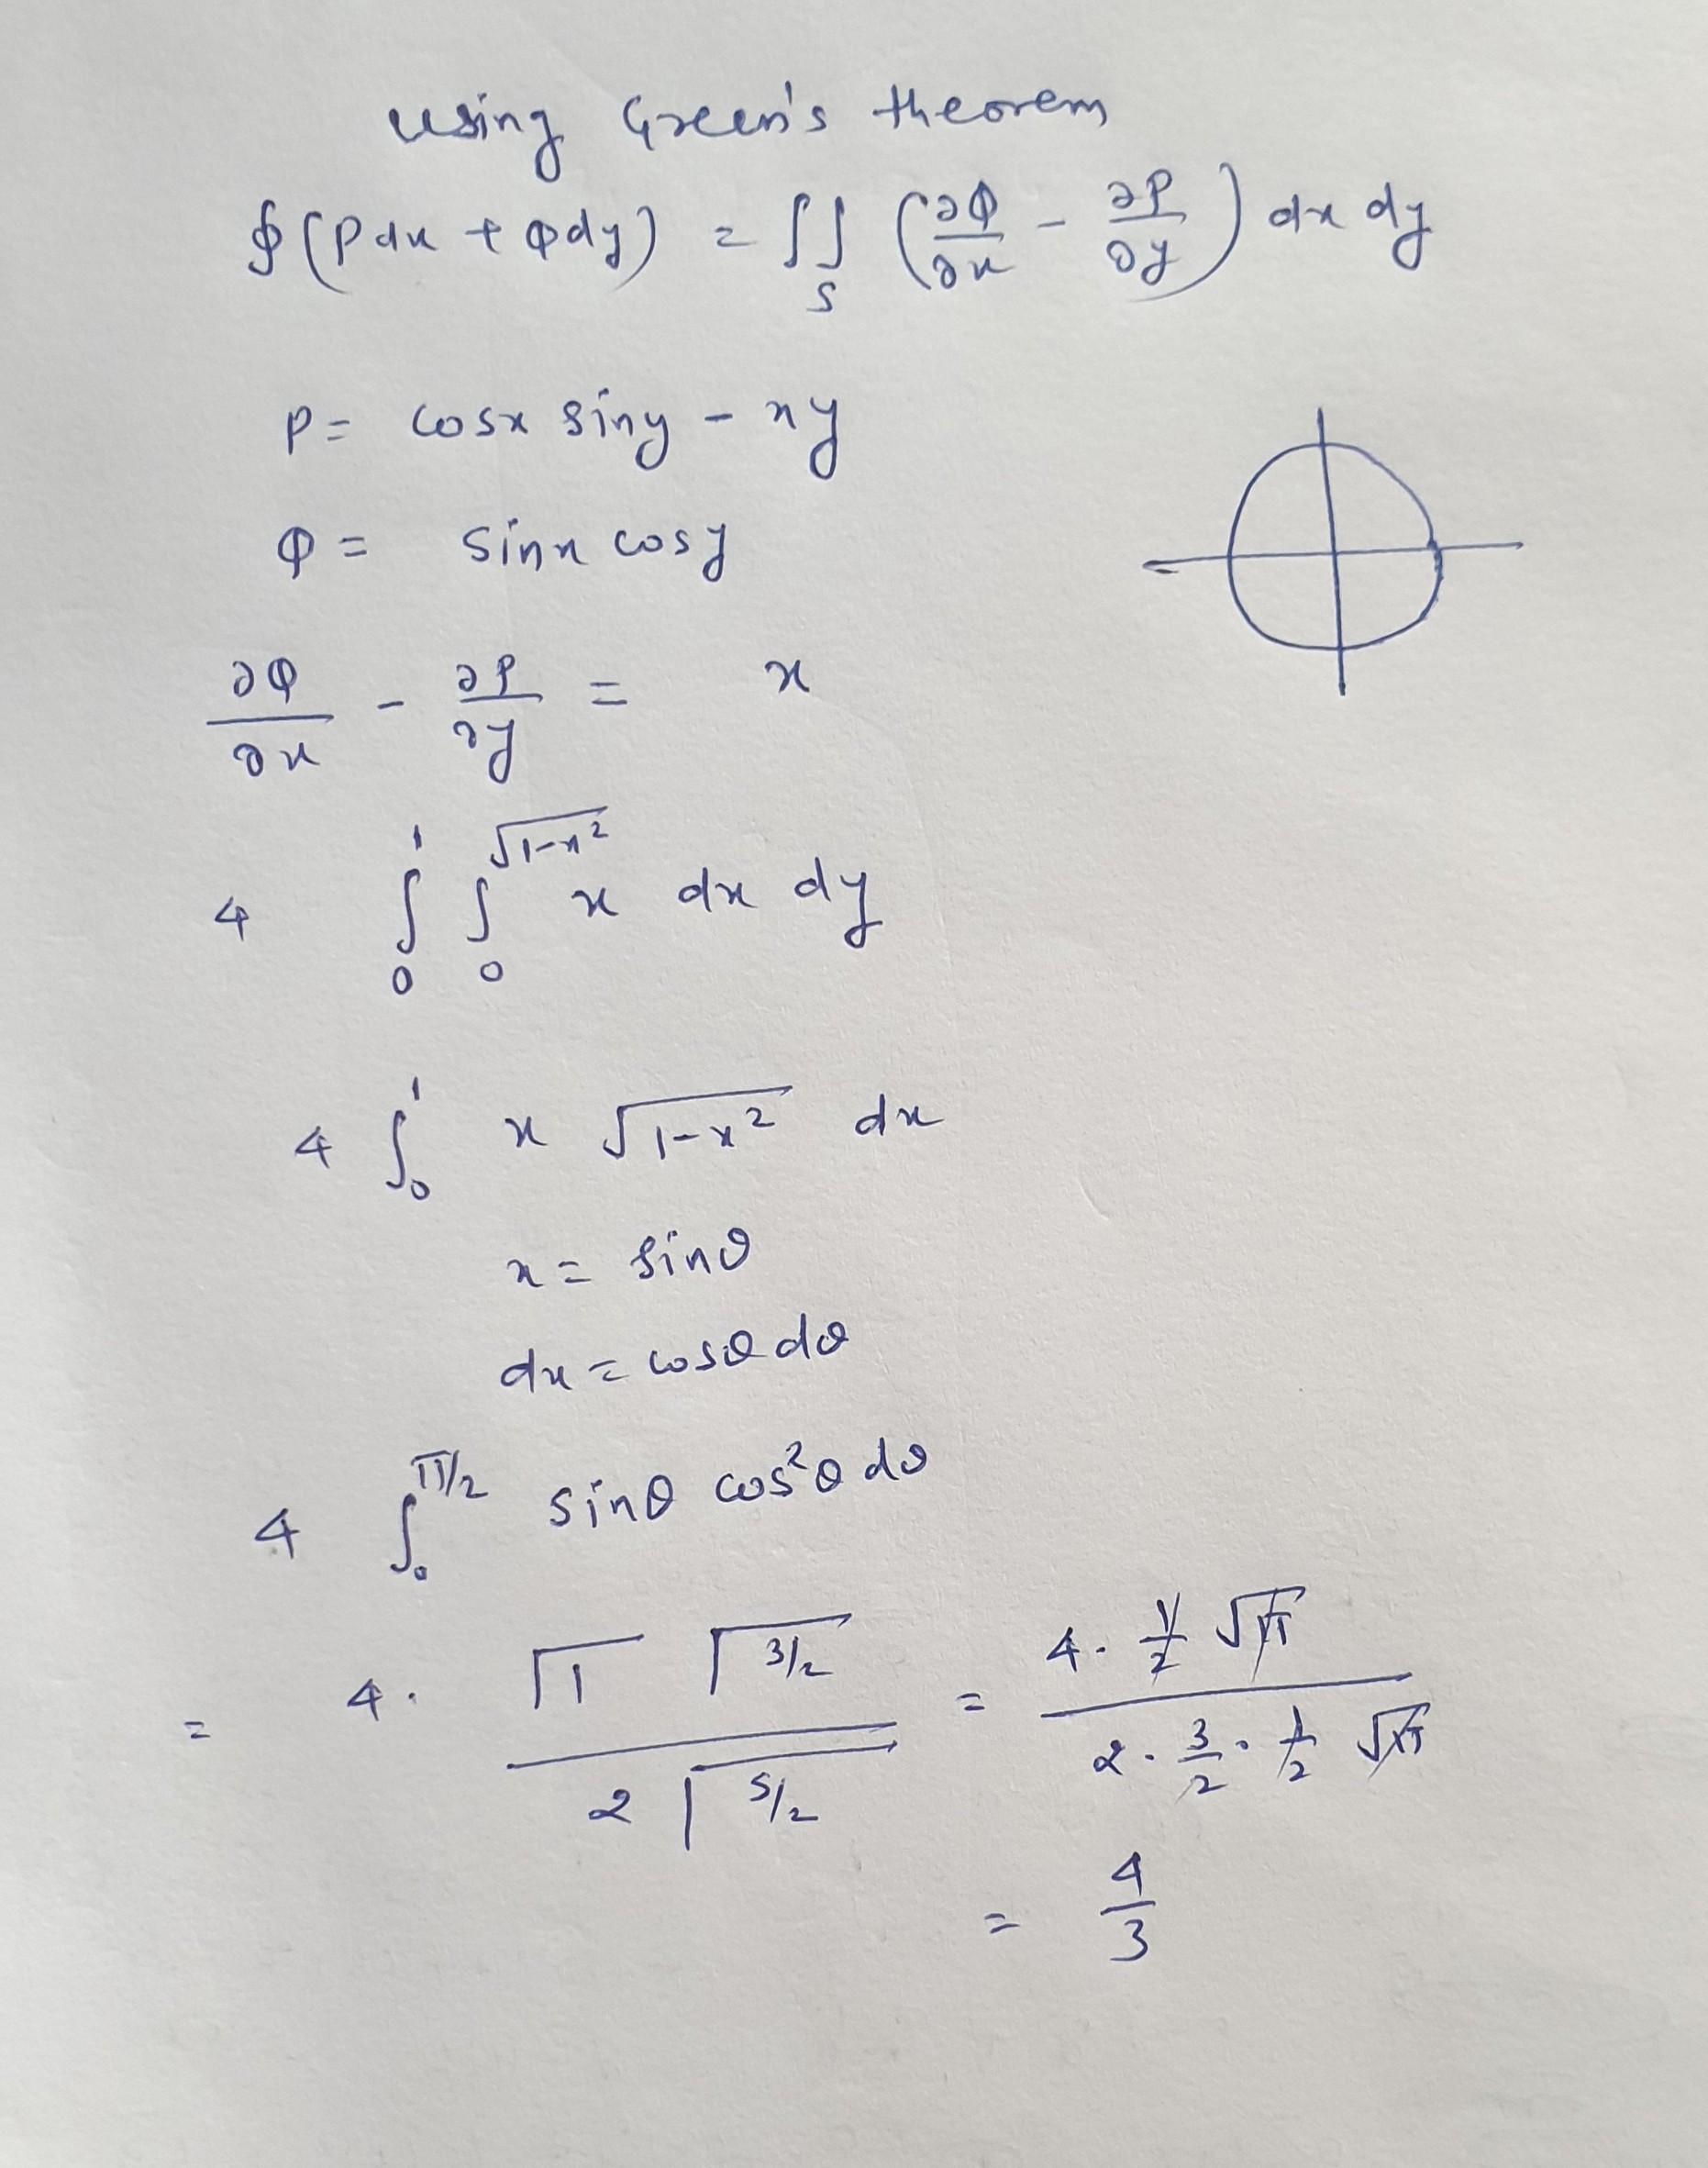 using Green's theorem
∮(Pdx + Qdy) = ∬_S (∂Q/∂x - ∂P/∂y) dx dy
P = cosx siny - xy
Q = sinx cosy
∂Q/∂x - ∂P/∂y = x
4 ∫_0^1 ∫_0^√(1-x²) x dx dy
4 ∫_0^1 x √(1-x²) dx
x = sinθ
dx = cosθ dθ
4 ∫_0^π/2 sinθ cos²θ dθ
= 4. (Γ1 Γ3/2)/(2 Γ5/2) = (4. 1/2 √π)/(2. 3/2. 1/2 √π)
= 4/3